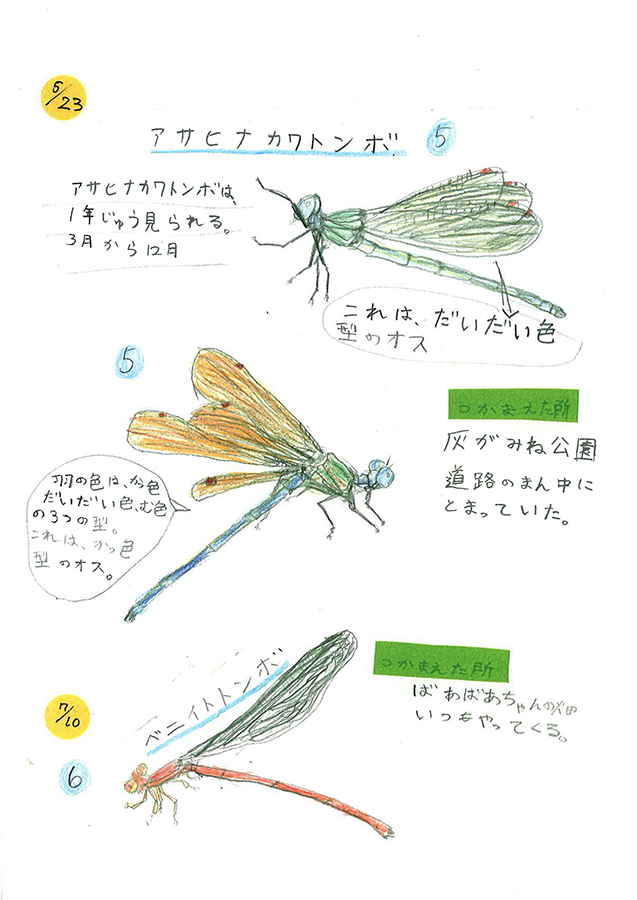 5/23
アサヒナカワトンボ
5
アサヒナカワトンボは、
1年じゅう見られる。
3月から12月
これは、だいだい色
型のオス
5
つかまえた所
灰がみね公園
道路のまん中に
とまっていた。
羽の色は、かっ色
だいだい色、む色
の3つの型。
これは、かっ色
型のオス。
7/10
ベニイトトンボ
6
つかまえた所
ばあばあちゃんの畑
いつもやってくる。